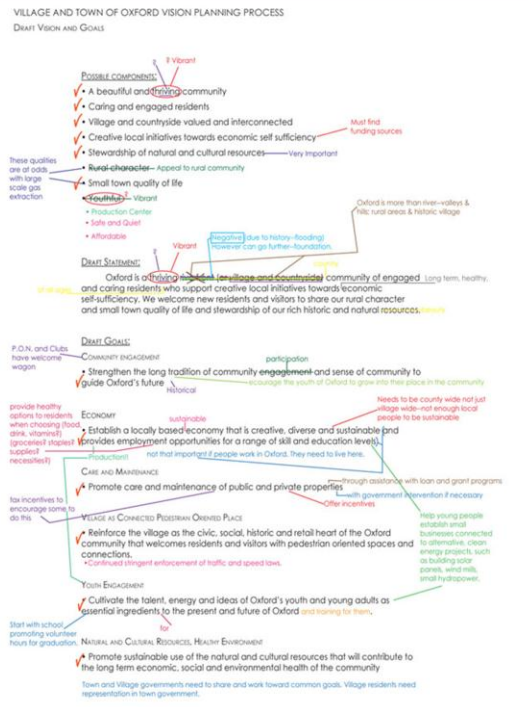 VILLAGE AND TOWN OF OXFORD VISION PLANNING PROCESS
DRAFT VISION AND GOALS
? Vibrant
?
POSSIBLE COMPONENTS:
• A beautiful and thriving community
• Caring and engaged residents
• Village and countryside valued and interconnected
• Creative local initiatives towards economic self sufficiency
Must find
funding sources
• Stewardship of natural and cultural resources
Very Important
These qualities
are at odds
with large
scale gas
extraction
• Rural character
Appeal to rural community
• Small town quality of life
• Youthful
?
Vibrant
• Production Center
• Safe and Quiet
• Affordable
Oxford is more than river-valleys &
hills; rural areas & historic village
Negative (due to history-flooding)
However can go further-foundation.
Vibrant
?
DRAFT STATEMENT:
country
Oxford is a thriving (or village and countryside) community of engaged
Long term, healthy,
of all ages
and caring residents who support creative local initiatives towards economic
self-sufficiency. We welcome new residents and visitors to share our rural character
and small town quality of life and stewardship of our rich historic and natural resources.
DRAFT GOALS:
P.O.N. and Clubs
have welcome
wagon
COMMUNITY ENGAGEMENT
participation
• Strengthen the long tradition of community engagement and sense of community to
guide Oxford's future
ecourage the youth of Oxford to grow into their place in the community
Historical
provide healthy
options to residents
when choosing (food,
drink, vitamins?)
(groceries? staples?
supplies?
necessities?)
Needs to be county wide not just
village wide-not enough local
people to be sustainable
ECONOMY
sustainable
• Establish a locally based economy that is creative, diverse and sustainable and
provides employment opportunities for a range of skill and education levels
Production!
not that important if people work in Oxford. They need to live here.
CARE AND MAINTENANCE
through assistance with loan and grant programs
• Promote care and maintenance of public and private properties
with government intervention if necessary
Offer incentives
tax incentives to
encourage some to
do this
VILLAGE AS CONNECTED PEDESTRIAN ORIENTED PLACE
• Reinforce the village as the civic, social, historic and retail heart of the Oxford
community that welcomes residents and visitors with pedestrian oriented spaces and
connections.
• Continued stringent enforcement of traffic and speed laws.
Help young people
establish small
businesses connected
to alternative, clean
energy projects, such
as building solar
panels, wind mills,
small hydropower.
YOUTH ENGAGEMENT
• Cultivate the talent, energy and ideas of Oxford's youth and young adults as
essential ingredients to the present and future of Oxford
and training for them.
for
Start with school,
promoting volunteer
hours for graduation.
NATURAL AND CULTURAL RESOURCES, HEALTHY ENVIRONMENT
• Promote sustainable use of the natural and cultural resources that will contribute to
the long term economic, social and environmental health of the community
Town and Village governments need to share and work toward common goals. Village residents need
representation in town government.